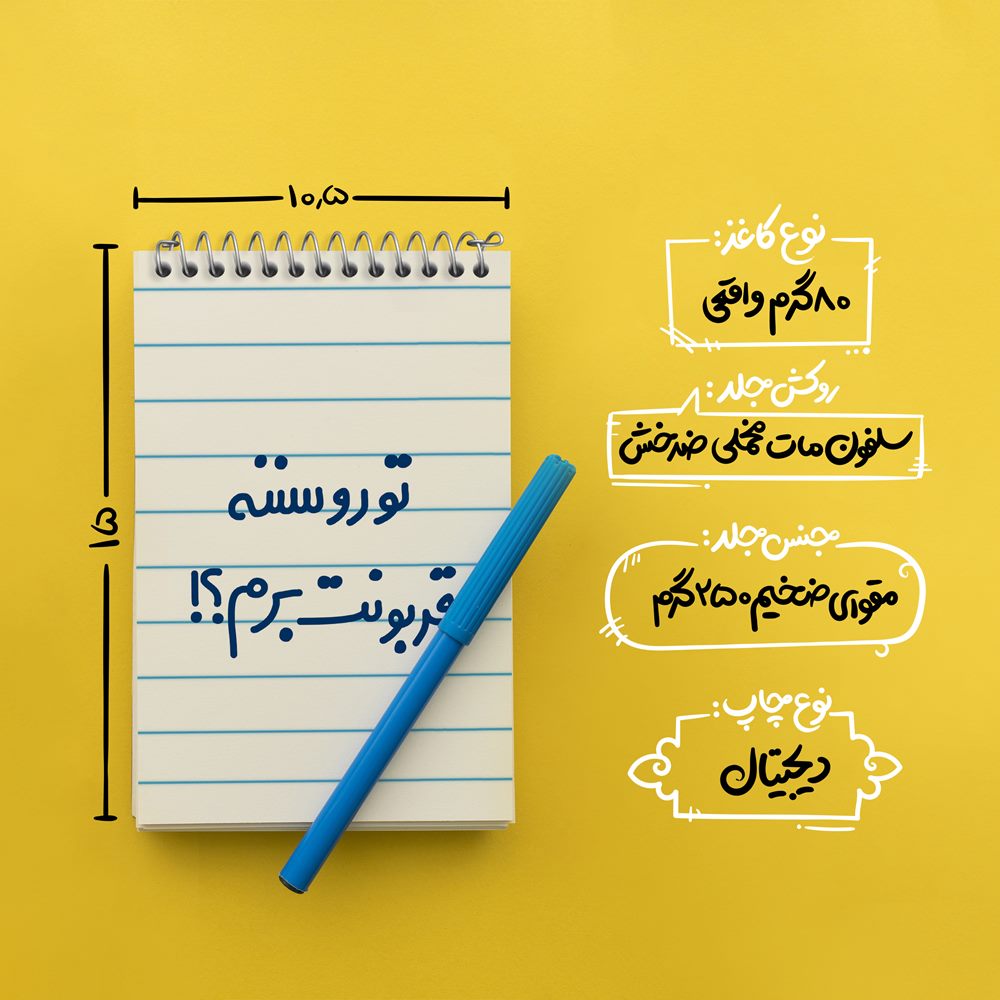 ۱۰٫۵
۱۵
تو روسته
قربونت برم؟!
نوع کاغذ:
۸۰گرم واقعی
روکش جلد:
سلفون مات مخملی ضدخش
جنس جلد:
مقوای ضخیم ۲۵۰ گرم
نوع چاپ:
دیجیتال